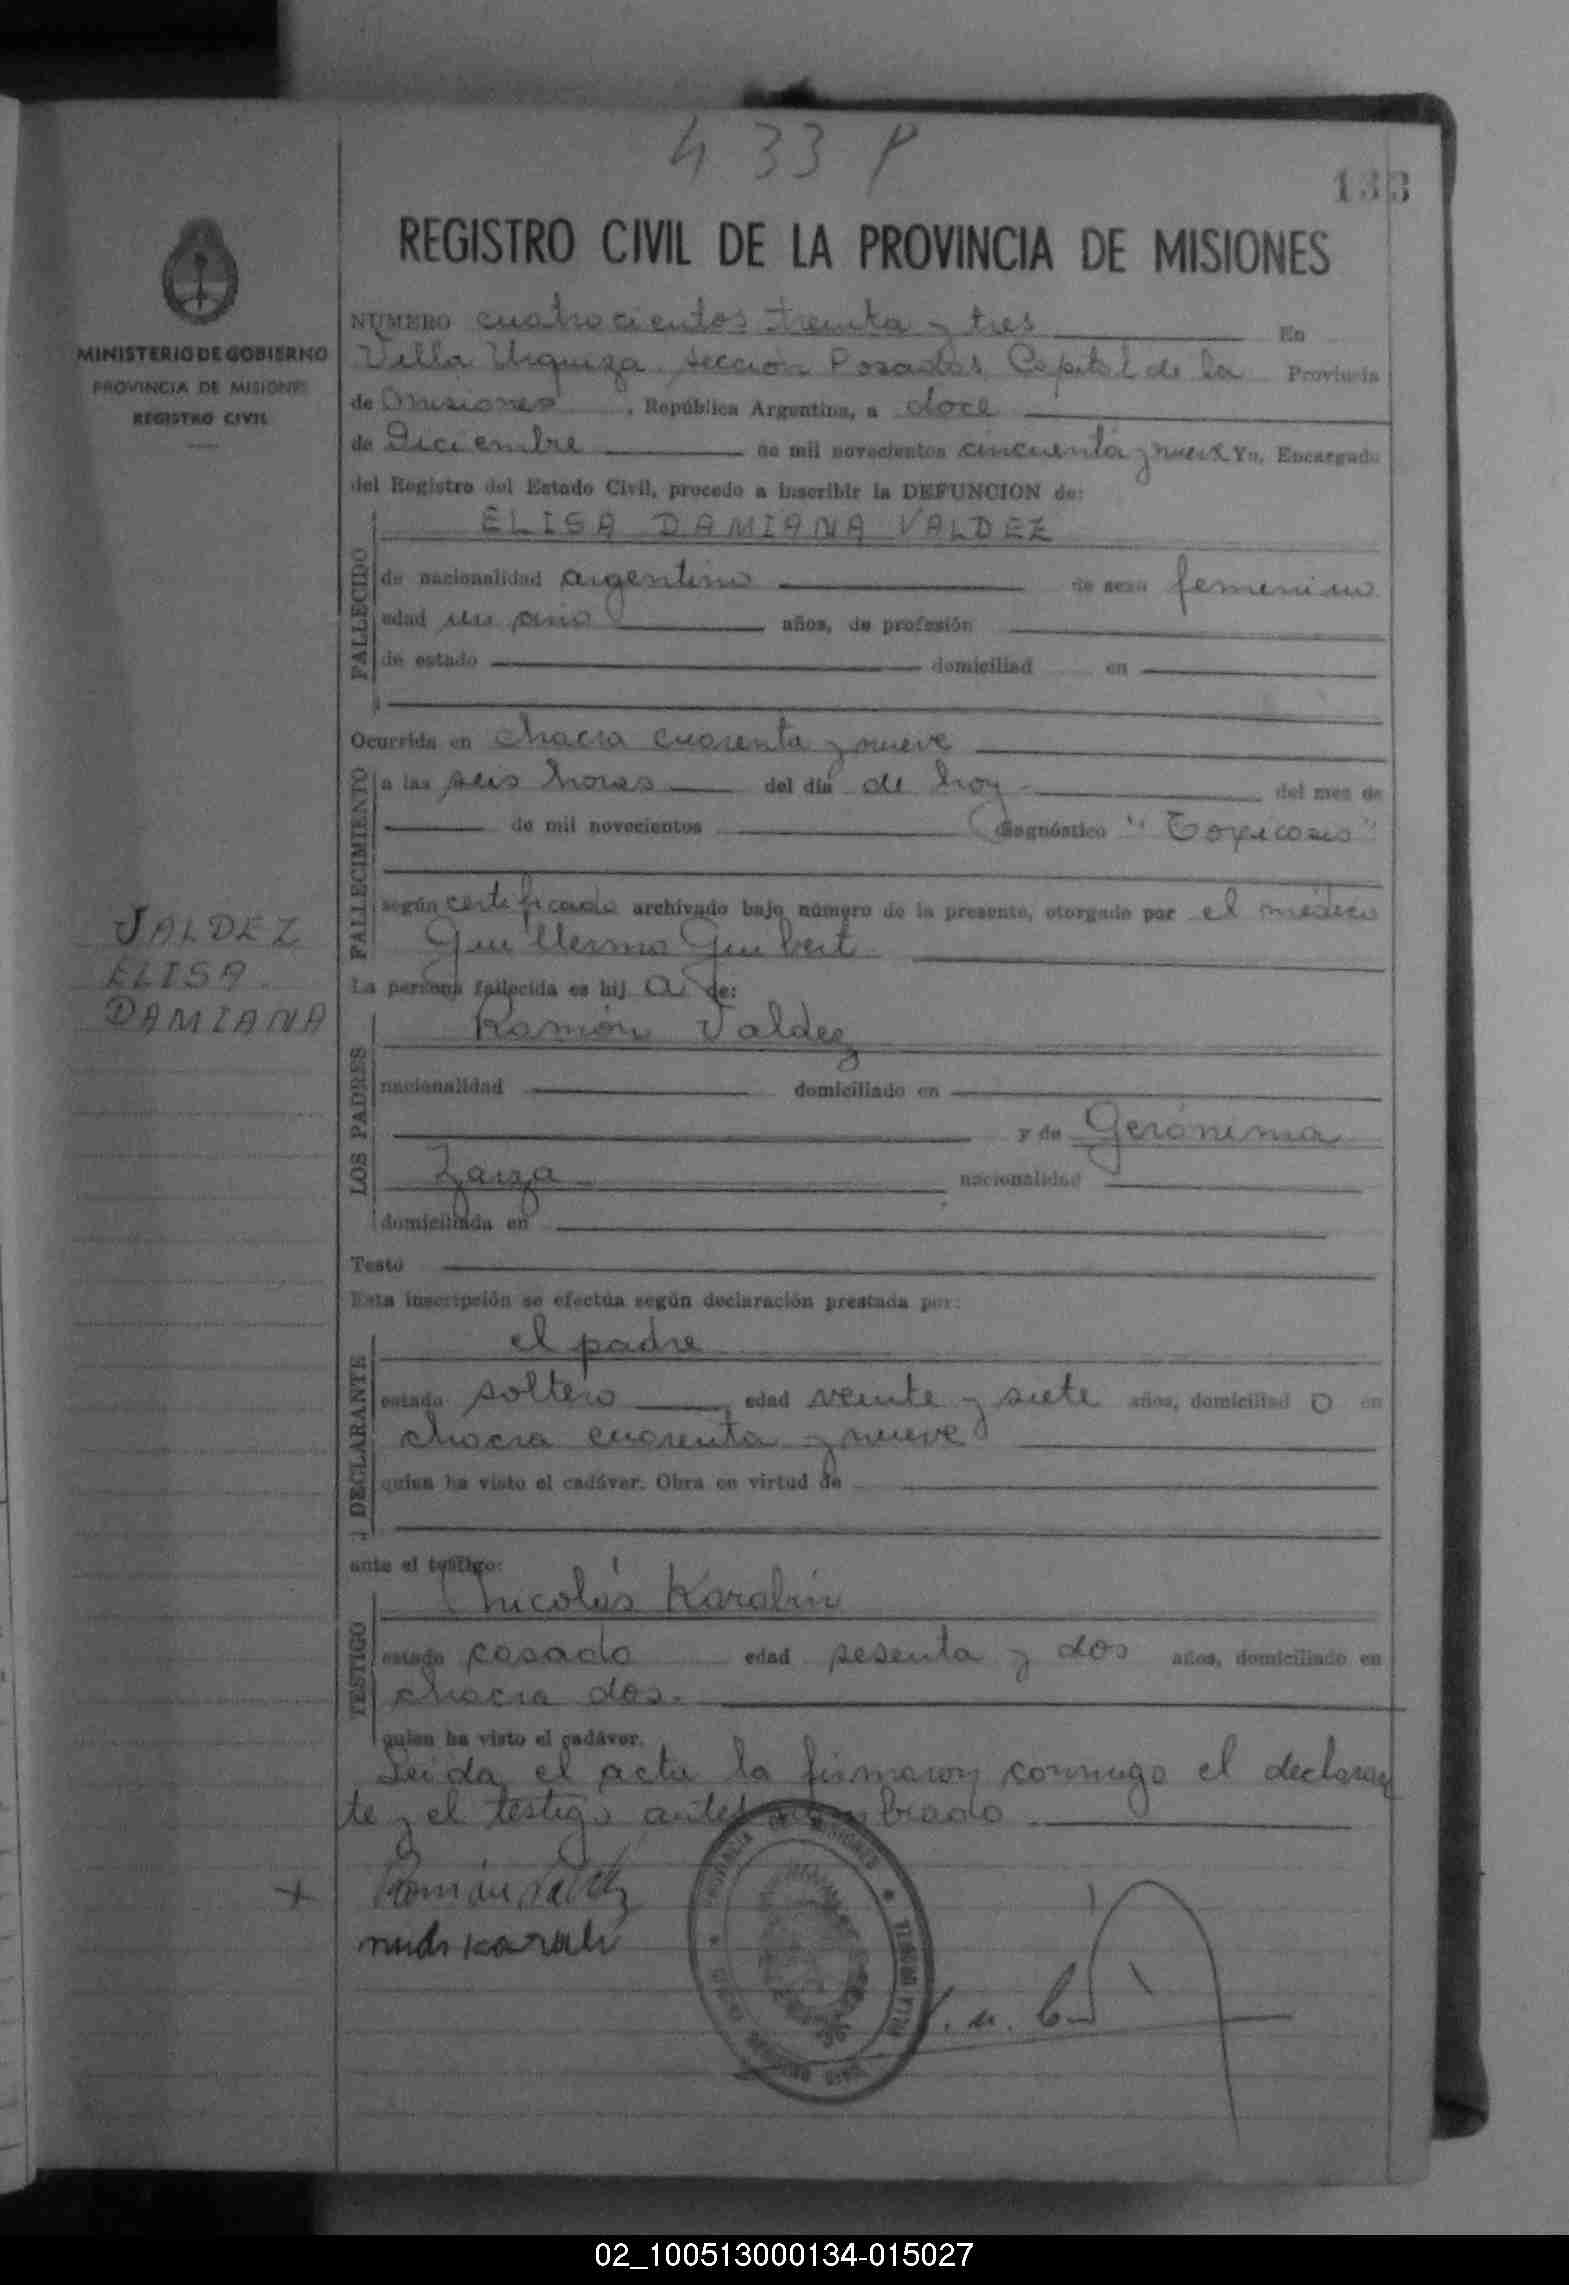 433 P
133
REGISTRO CIVIL DE LA PROVINCIA DE MISIONES
MINISTERIO DE GOBIERNO
PROVINCIA DE MISIONES
REGISTRO CIVIL
NUMERO cuatrocientos treinta y tres En
Villa Urquiza sección Posadas Capital de la Provincia
de Misiones, República Argentina, a doce
de Diciembre de mil novecientos cincuenta y nueve Yo, Encargado
del Registro del Estado Civil, procedo a inscribir la DEFUNCION de:
FALLECIDO
ELISA DAMIANA VALDEZ
de nacionalidad argentina de sexo femenino
edad un año años, de profesión
de estado domiciliad en
Ocurrida en chacra cuarenta y nueve
FALLECIMIENTO
a las seis horas del día de hoy del mes de
de mil novecientos diagnóstico "Toxicosis"
según certificado archivado bajo número de la presente, otorgado por el médico
Guillermo Guibert
VALDEZ
ELISA
DAMIANA
La persona fallecida es hij a de:
LOS PADRES
Ramón Valdez
nacionalidad domiciliado en
y de Gerónima
Zarza nacionalidad
domiciliada en
Testó
Esta inscripción se efectúa según declaración prestada por:
DECLARANTE
el padre
estado soltero edad veinte y siete años, domiciliad o en
chacra cuarenta y nueve
quien ha visto el cadáver. Obra en virtud de
ante el testigo:
TESTIGO
Nicolás Karabin
estado casado edad sesenta y dos años, domiciliado en
chacra dos.
quien ha visto el cadáver.
Leida el acta la firmaron conmigo el declaran
te y el testigo antes brado
x Ramón Valdez
PROVINCIA DE MISIONES
02_100513000134-015027